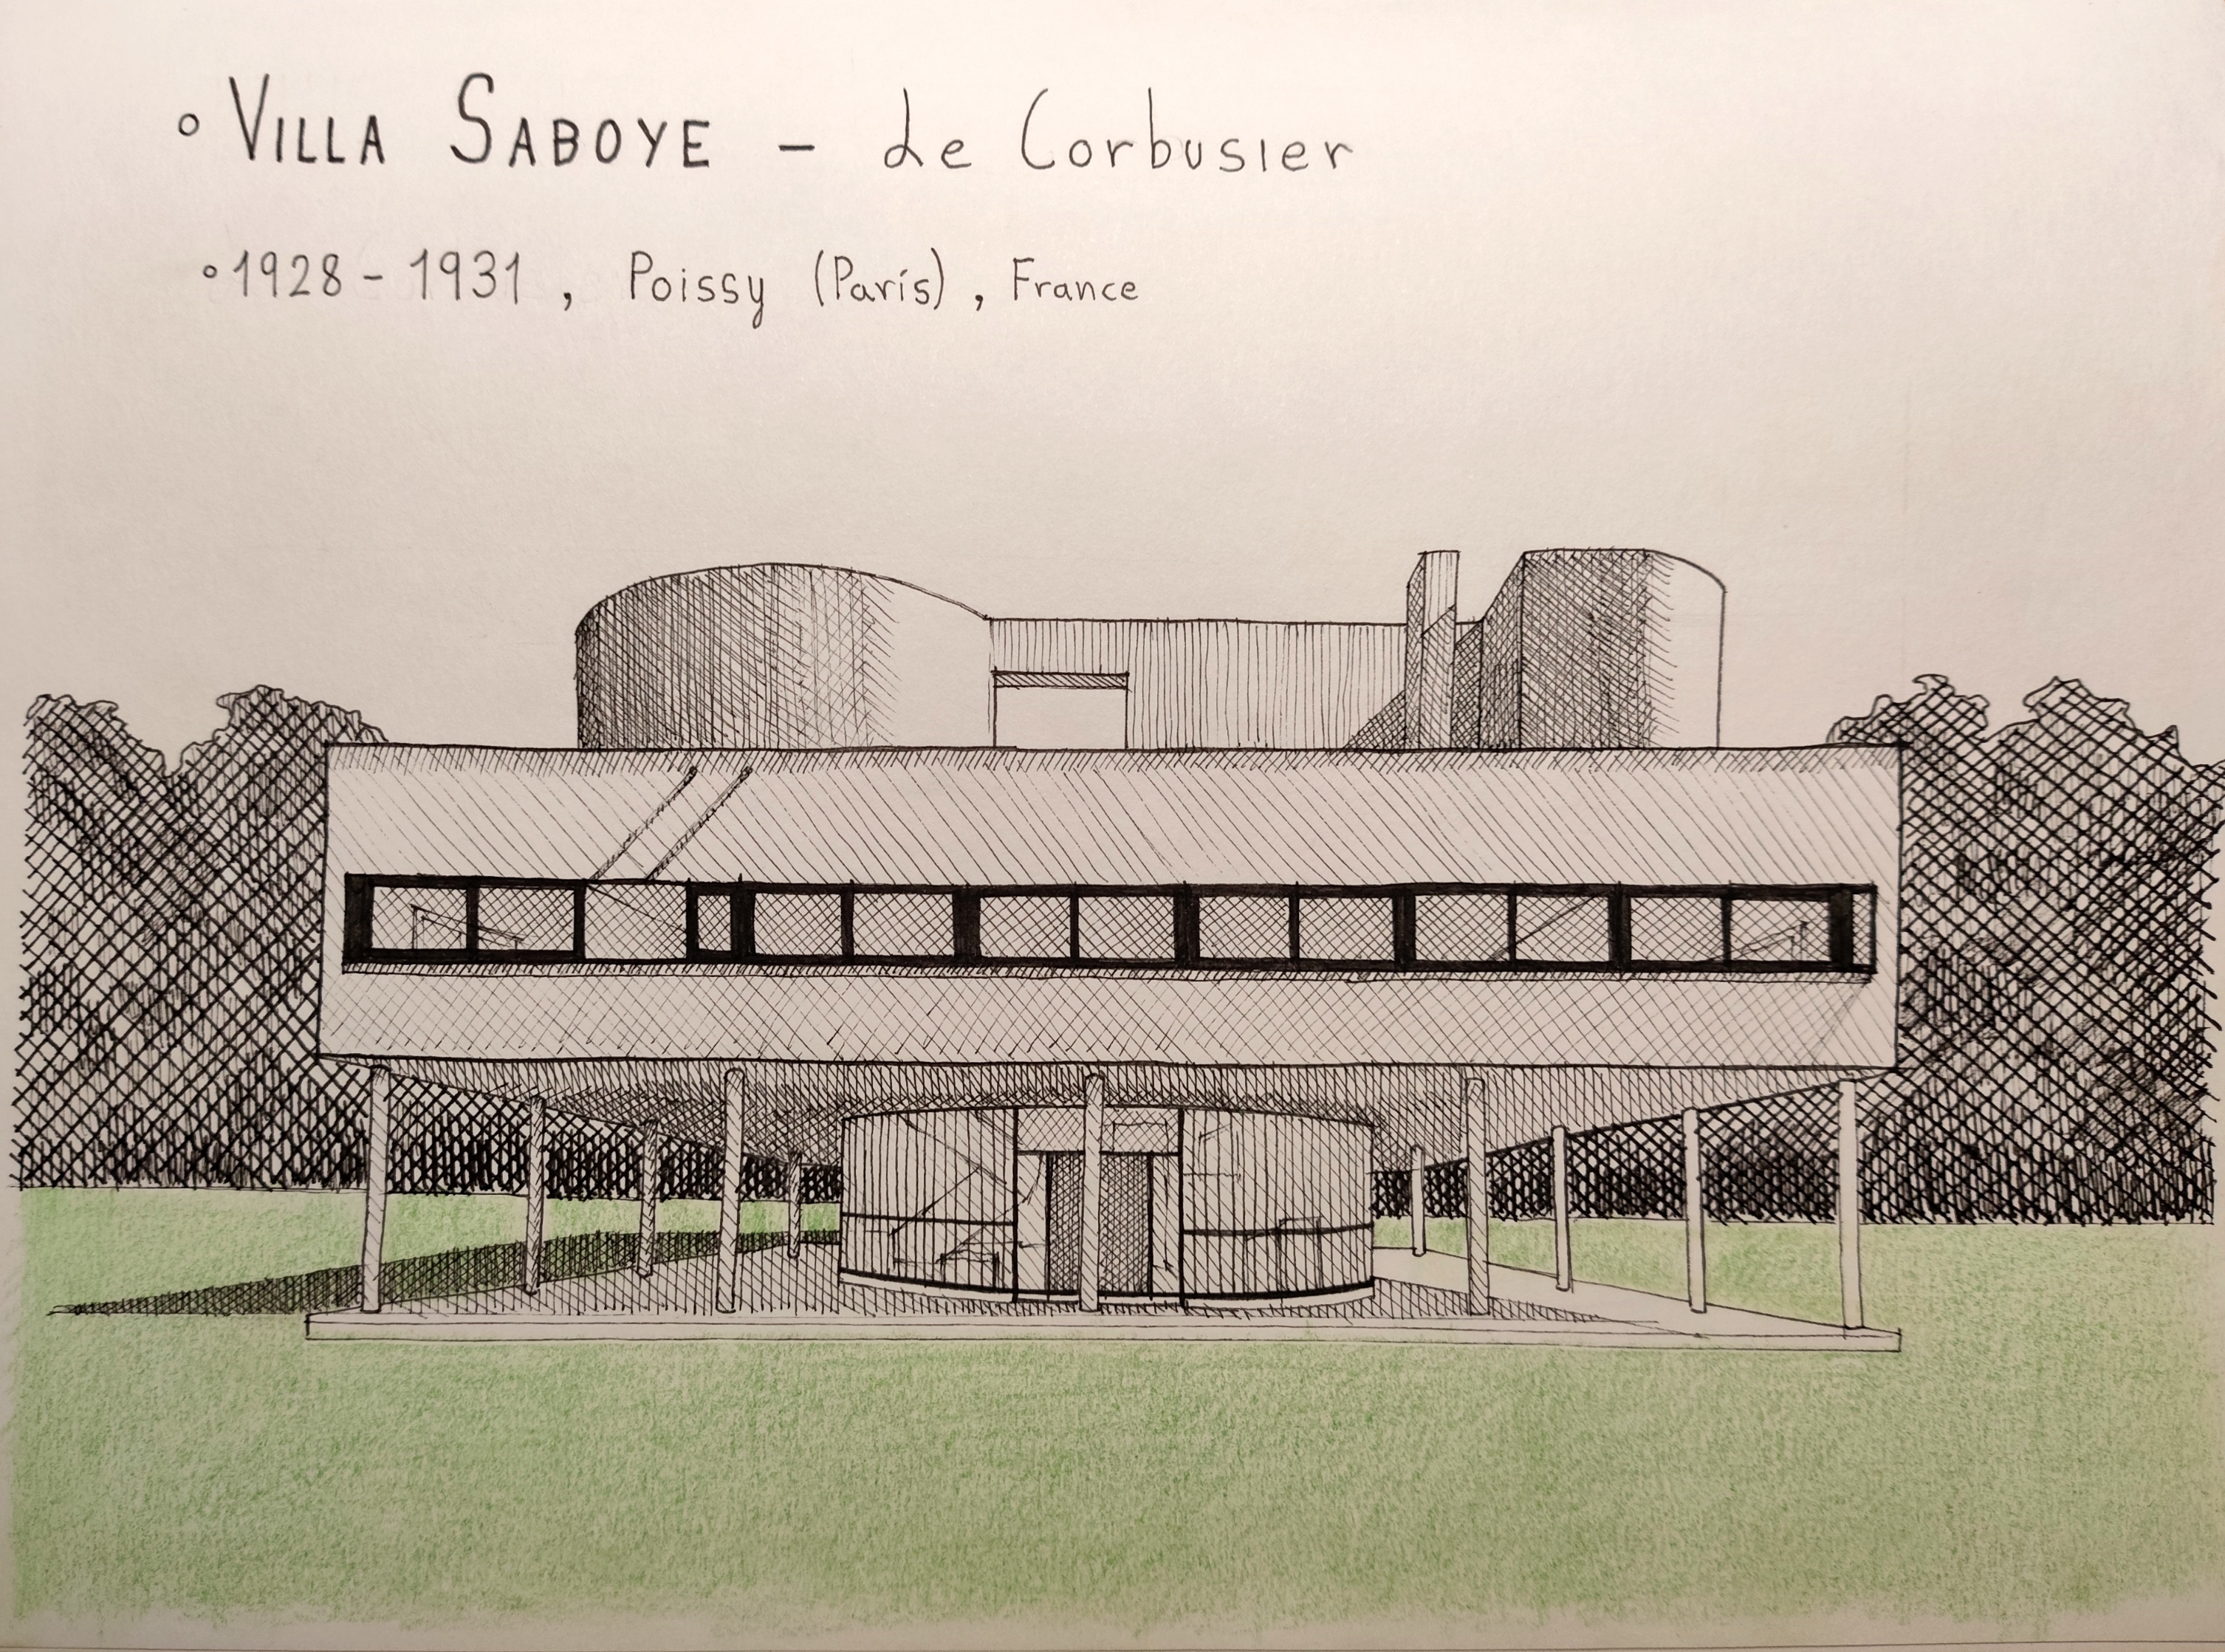 ° VILLA SABOYE - Le Corbusier
° 1928 - 1931 , Poissy (París) , France